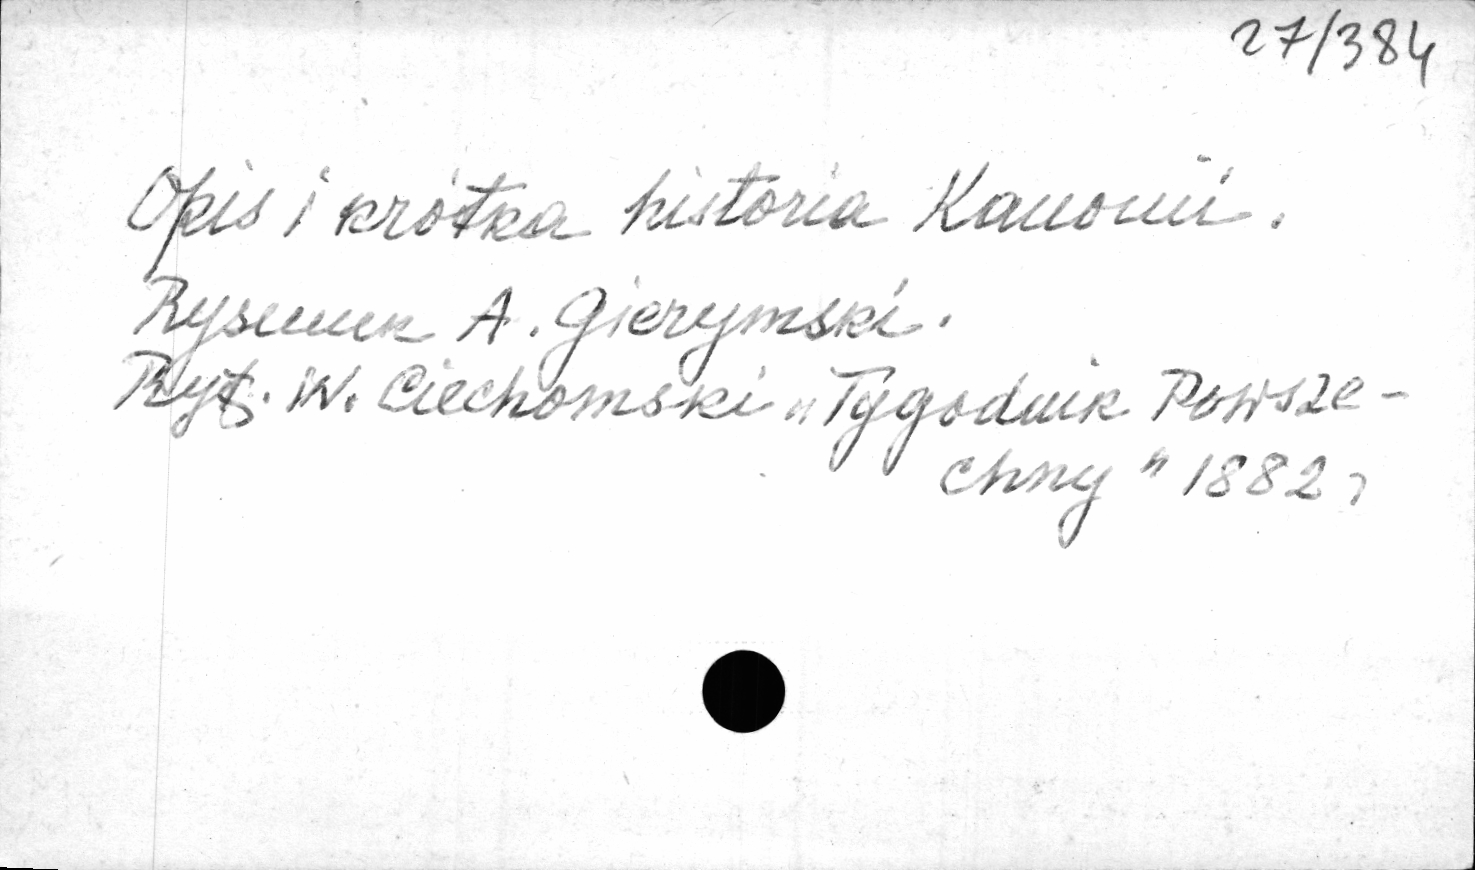 27/384
Opis i krótka historia Kanonii.
Rysunek A. Gierymski.
Ryt. W. Ciechomski „Tygodnik Powsze-
chny" 1882 r